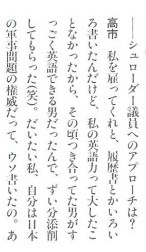 ――シュローダー議員へのアプローチは？
高市　私を雇ってくれと、履歴書とかいろい
ろ書いたんだけど、私の英語力って大したこ
となかったから、その頃つき合ってた男がす
っごく英語できる男だったんで、ずい分添削
してもらった（笑）。だいたい私、自分は日本
の軍事問題の権威だって、ウソ書いたの。あ